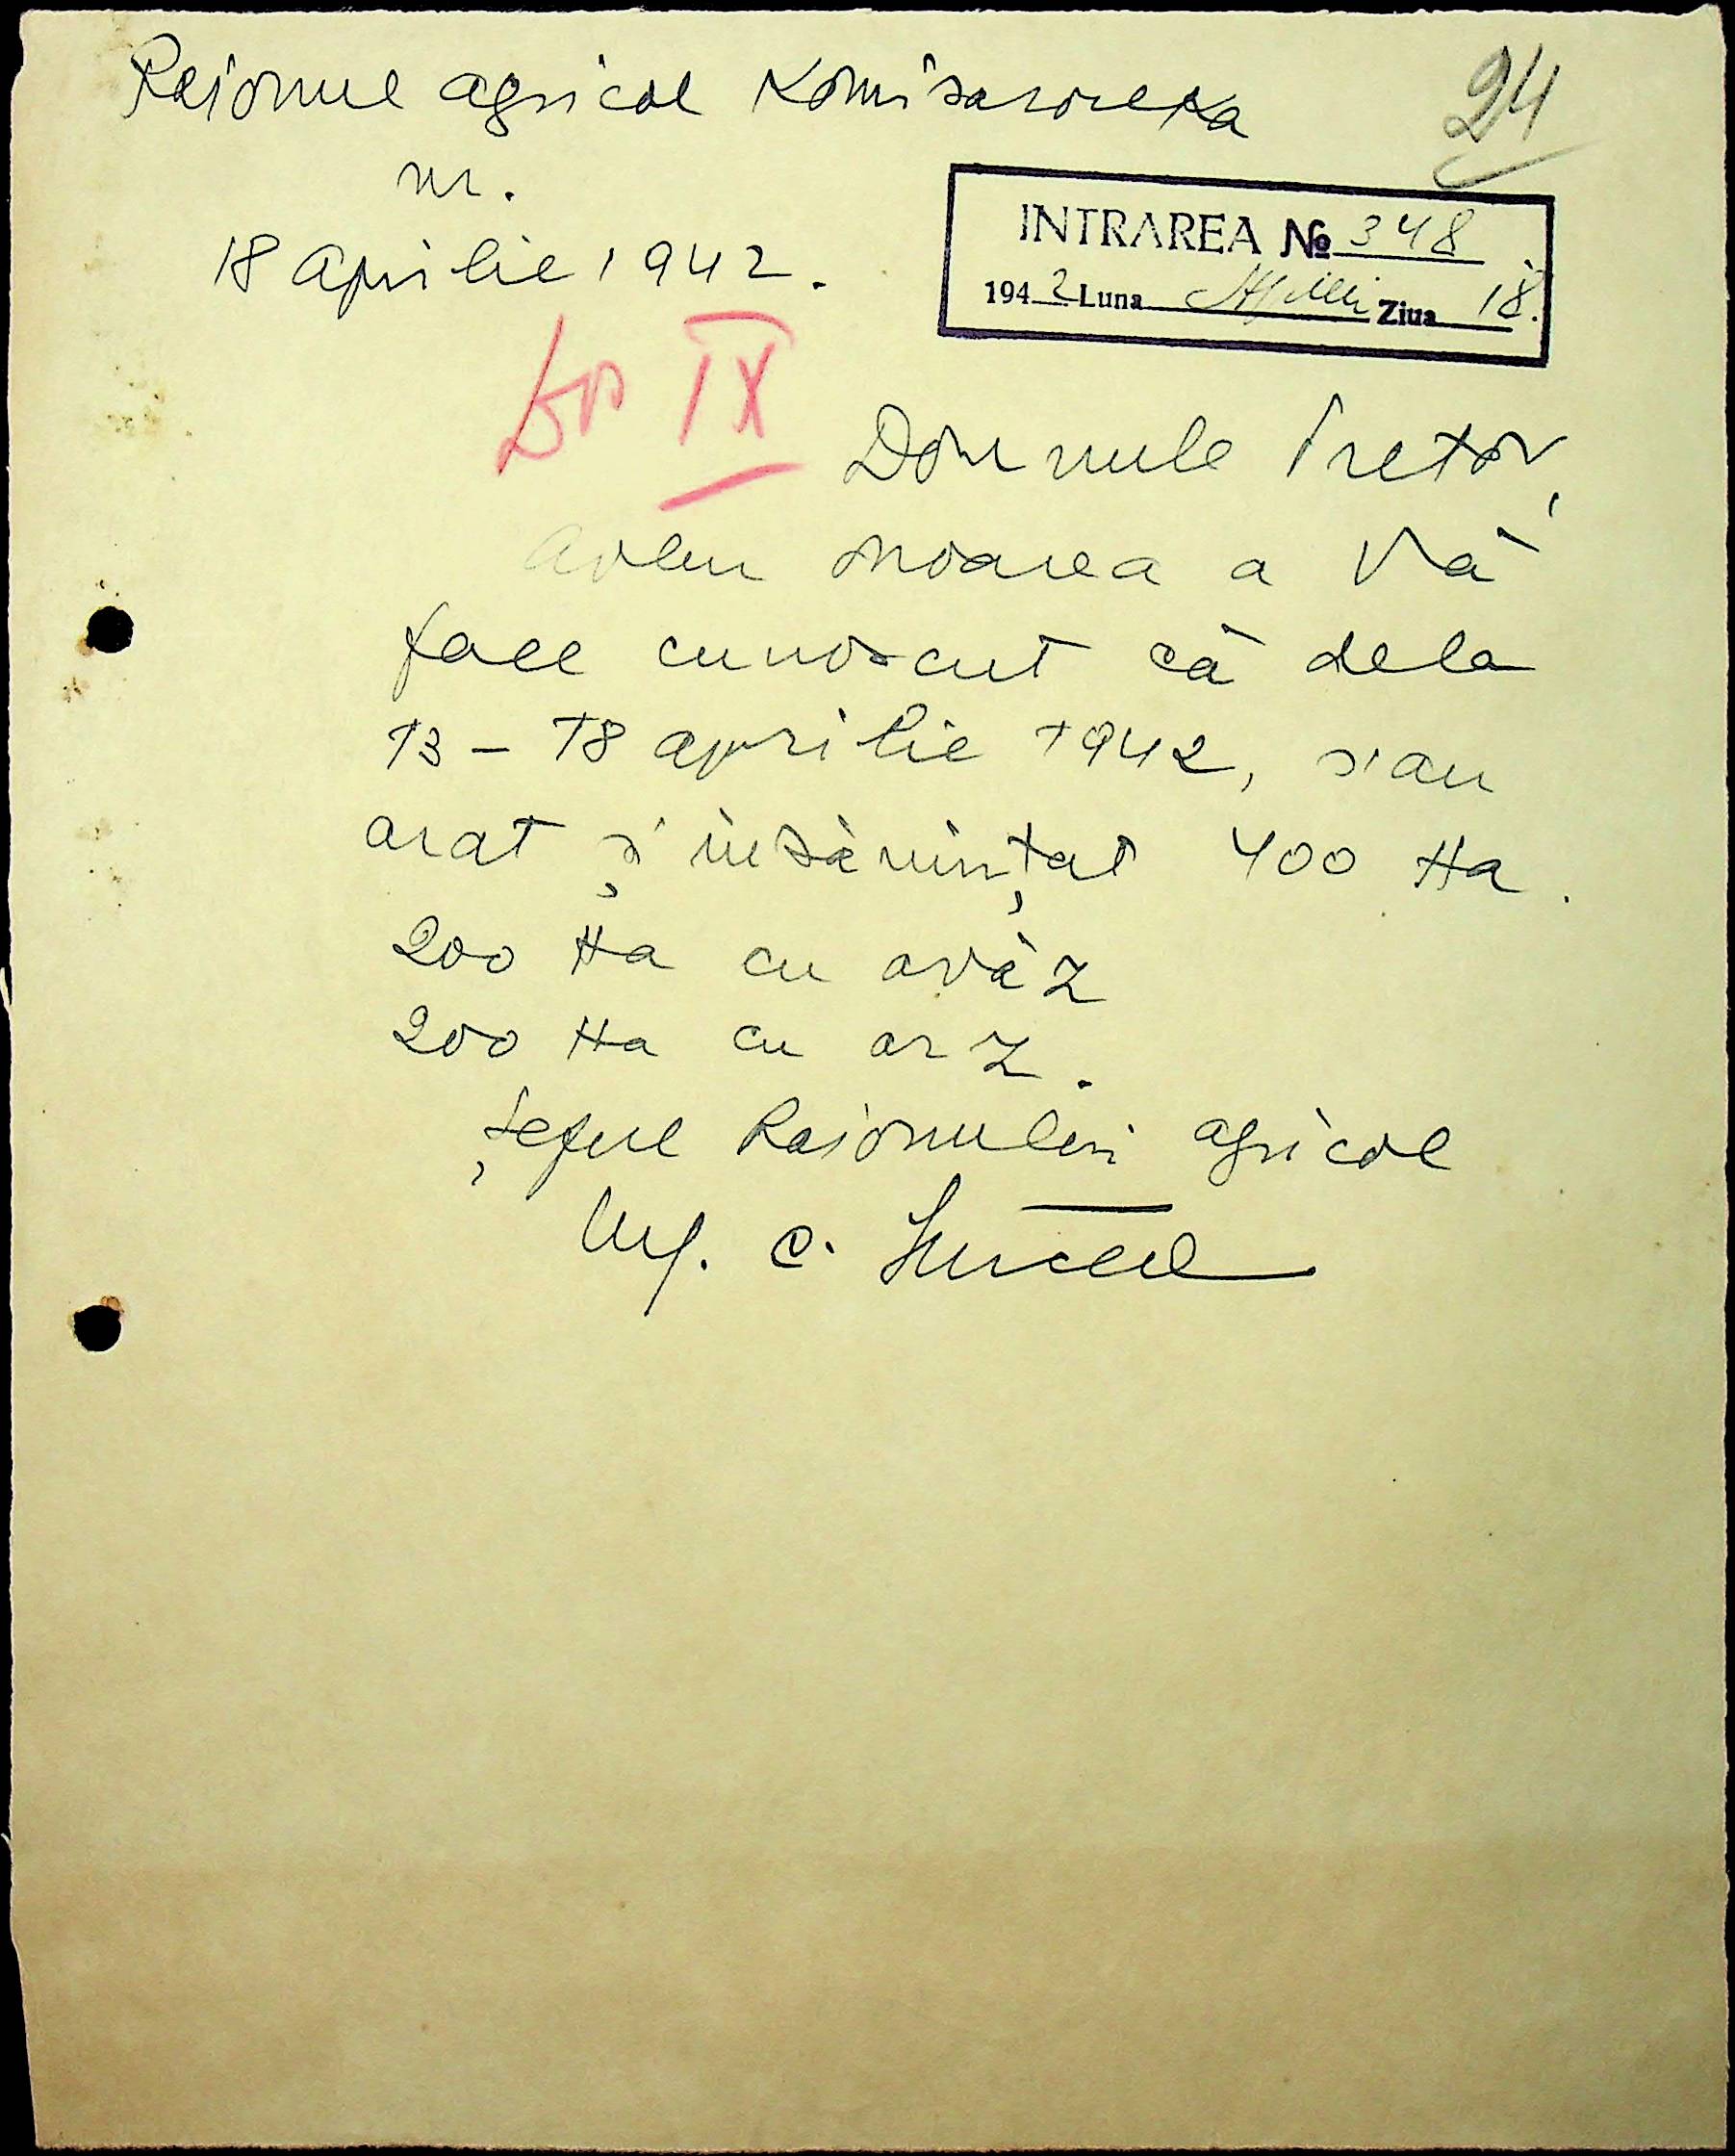 Raionul agricol Komisarovka
24
nr.
18 aprilie 1942.
INTRAREA № 348
1942 Luna Aprilie Ziua 18.
IX
Domnule Pretor,
Avem onoarea a Vă
face cunoscut că dela
13 – 18 aprilie 1942, s'au
arat și însămînțat 400 Ha.
200 Ha cu ovăz
200 Ha cu orz.
Șeful Raionului agricol
Ing. C.